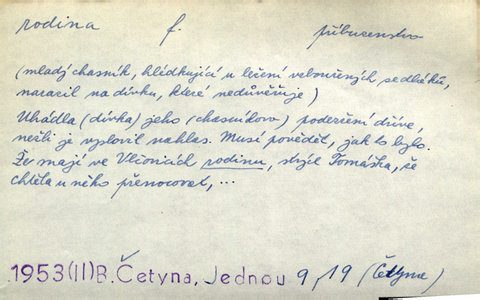 rodina f. příbuzenstvo
(mladý chasník, hlídkující u ležení vzbouřených sedláků,
narazil na dívku, které nedůvěřuje)
Uhádla (dívka) jeho (chasníkovo) podezření dříve,
nežli je vyslovil nahlas. Musí povědět, jak to bylo.
Že mají ve Vlčonicích rodinu, strýce Tomáška, že
chtěla u něho přenocovat, ...
1953(II)B. Četyna, Jednou 9, 19 (Četyna)